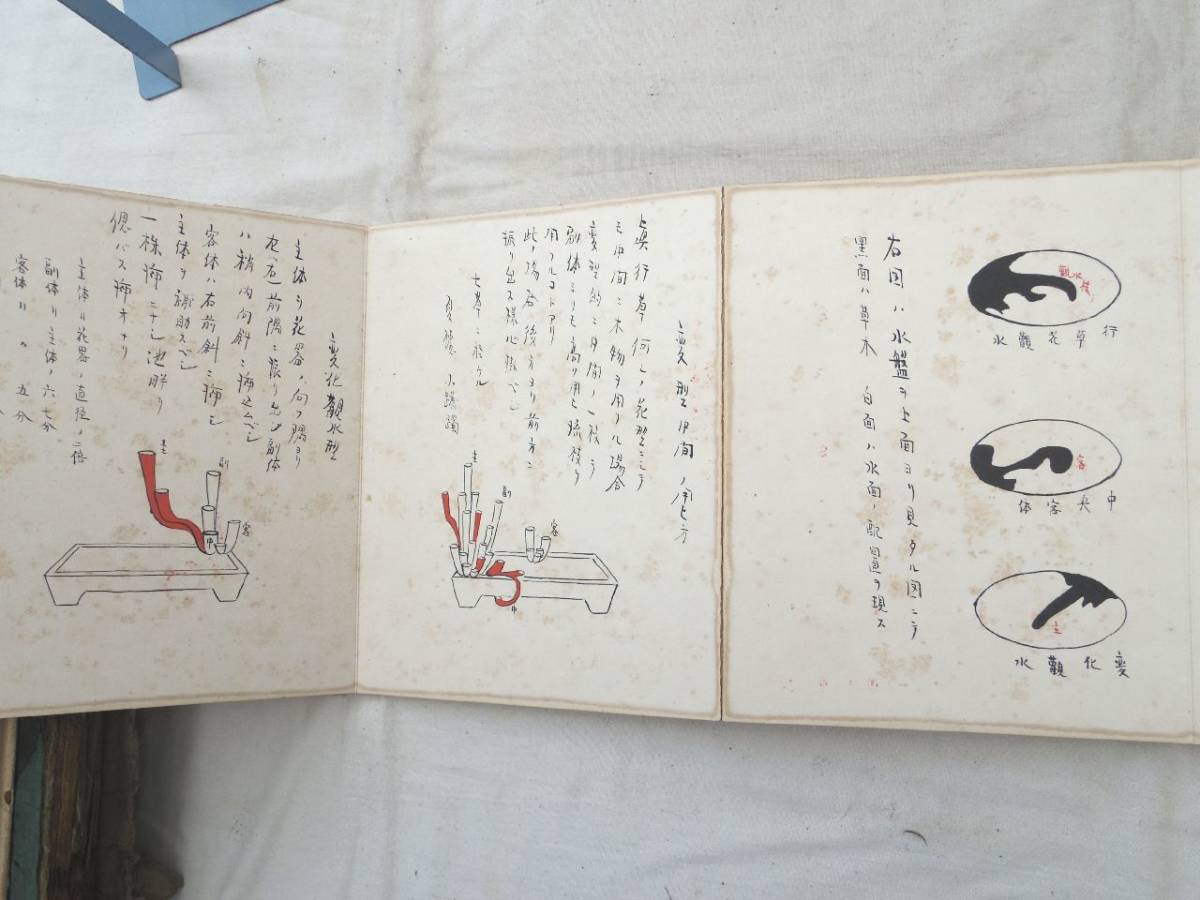 行草花観水
観水
中央客体
客
変化観水
主
右図ハ水盤ヲ上面ヨリ見タル図ニテ
黒面ハ草木 白面ハ水面ノ配置ヲ現ス
変型中間ノ用ヒ方
真行草何レノ花型ニテ
モ中間ニ木物ヲ用フル場合
変型的ニ中間ノ一枝ヲ
副体ヨリモ高ク用ヒ
用フルコトアリ
此ノ場合後方ヨリ前方ニ
振リ出ス様心
主
副
客
中
変化観水型
主体ヲ花器ノ向フ隅ヨリ
左(右)前隅ニ振リ出シ副体
ハ稍内向斜ニ挿
客体ハ右前斜ニ挿シ
主体ヲ補助スベシ
一株挿ニナシ池畔ヲ
偲バス挿オナリ
主体ハ花器ノ直径ノ二倍
副体ハ主体ノ六七分
客体ハ 〃 五分
主
副
中
客